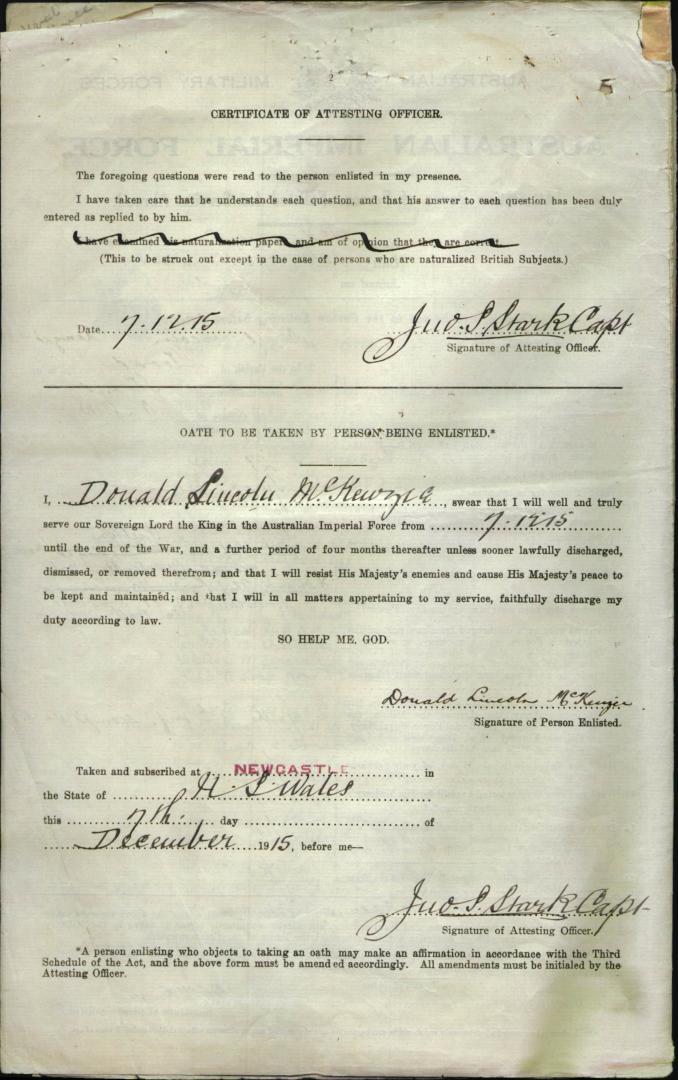 2
CERTIFICATE OF ATTESTING OFFICER.
The foregoing questions were read to the person enlisted in my presence.
I have taken care that he understands each question, and that his answer to each question has been duly
entered as replied to by him.
I have examined his naturalization papers and am of opinion that they are correct.
(This to be struck out except in the case of persons who are naturalized British Subjects.)
Date 7.12.15
Jno. S. Stark Capt
Signature of Attesting Officer.
OATH TO BE TAKEN BY PERSON BEING ENLISTED.*
I, Donald Lincoln McKenzie, swear that I will well and truly
serve our Sovereign Lord the King in the Australian Imperial Force from 7.12.15
until the end of the War, and a further period of four months thereafter unless sooner lawfully discharged,
dismissed, or removed therefrom; and that I will resist His Majesty's enemies and cause His Majesty's peace to
be kept and maintained; and that I will in all matters appertaining to my service, faithfully discharge my
duty according to law.
SO HELP ME, GOD.
Donald Lincoln McKenzie
Signature of Person Enlisted.
Taken and subscribed at NEWCASTLE in
the State of N. S. Wales
this 7th. day of
December 1915, before me—
Jno. S. Stark Capt
Signature of Attesting Officer.
*A person enlisting who objects to taking an oath may make an affirmation in accordance with the Third
Schedule of the Act, and the above form must be amended accordingly. All amendments must be initialed by the
Attesting Officer.